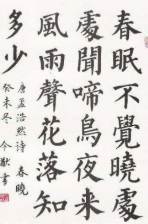 春眠不覺曉處
處聞啼鳥夜來
風雨聲花落知
多少
唐孟浩然诗 春曉
癸未冬 書